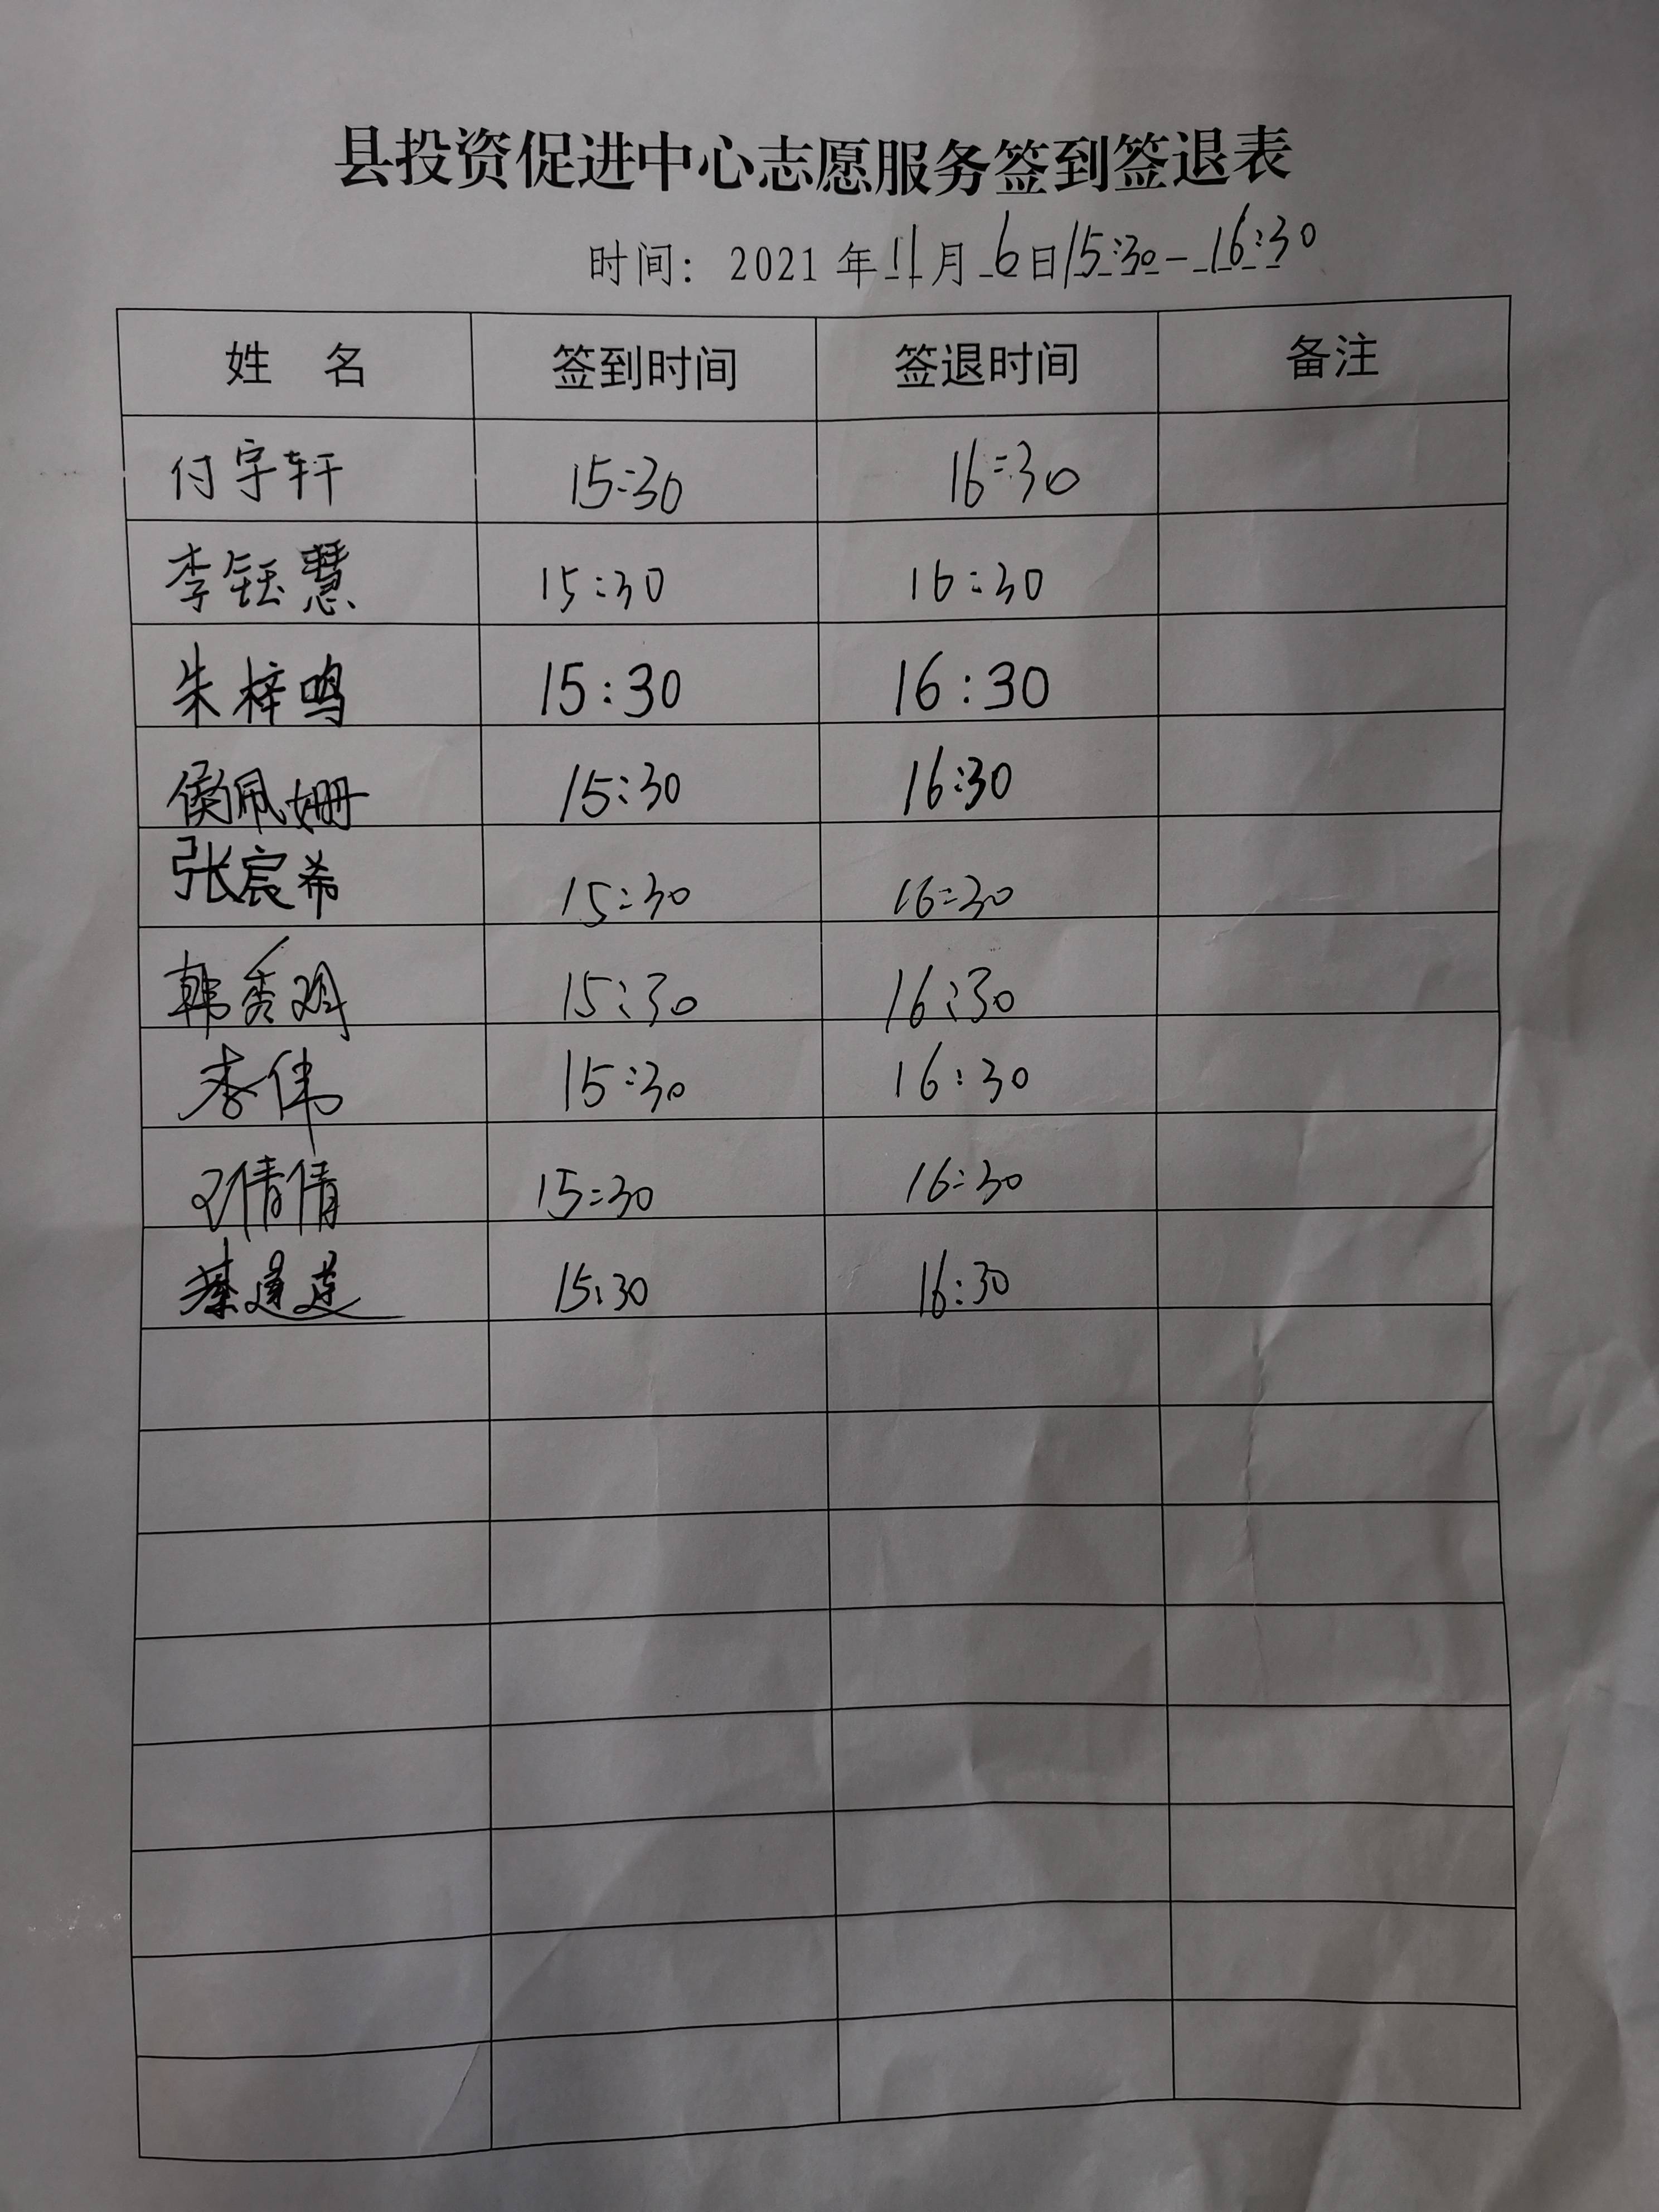 县投资促进中心志愿服务签到签退表
时间：2021年11月6日15:30-16:30
姓 名 签到时间 签退时间 备注
付宇轩 15:30 16:30
李钰慧 15:30 16:30
朱梓鸣 15:30 16:30
侯佩姗 15:30 16:30
张宸希 15:30 16:30
韩秀 15:30 16:30
李伟 15:30 16:30
倩倩 15:30 16:30
15:30 16:30